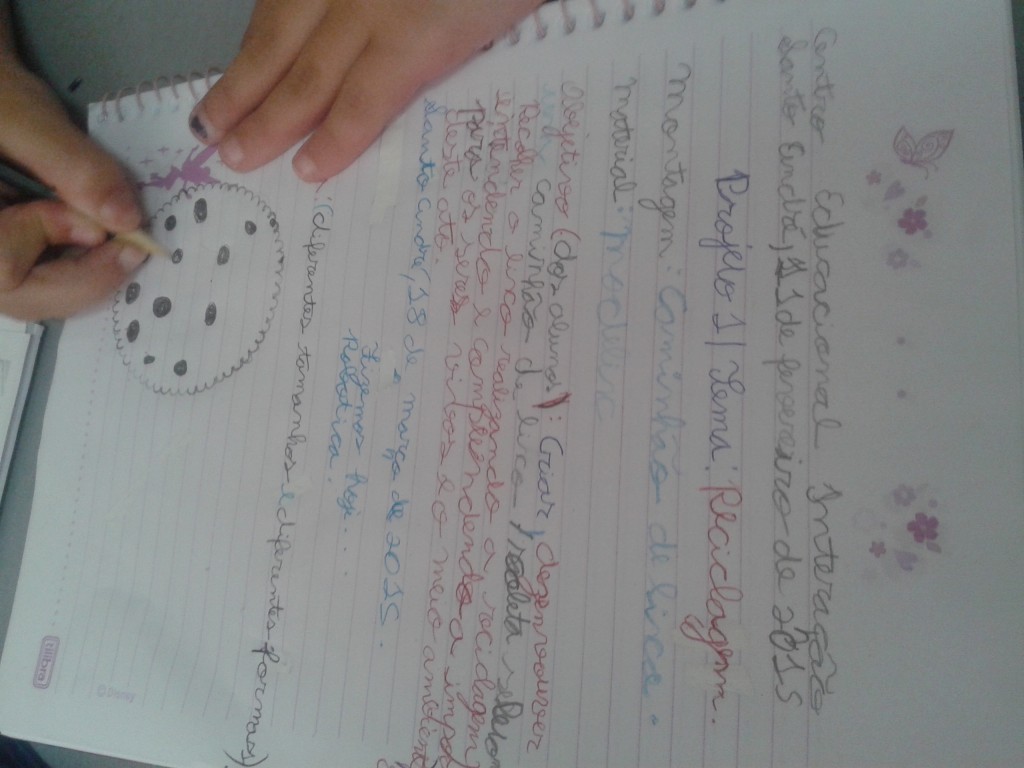 Centro Educacional Interação
Santo André, 11 de fevereiro de 2015
Projeto 1 / Tema: Reciclagem.
Montagem: Caminhão de lixo.
Material:
Objetivo (dos alunos): Criar, dezenvouver
caminhão de lixo,
Recolher o lixo realizando
intendendo e compliendendo a recidagem
para os seres vivos e o meio ambiente
neste ato.
Santo André, 18 de março de 2015.
Fizemos hoje...
Robótica!
(diferentes tamanhos e diferentes formas)
tilibra
© Disney